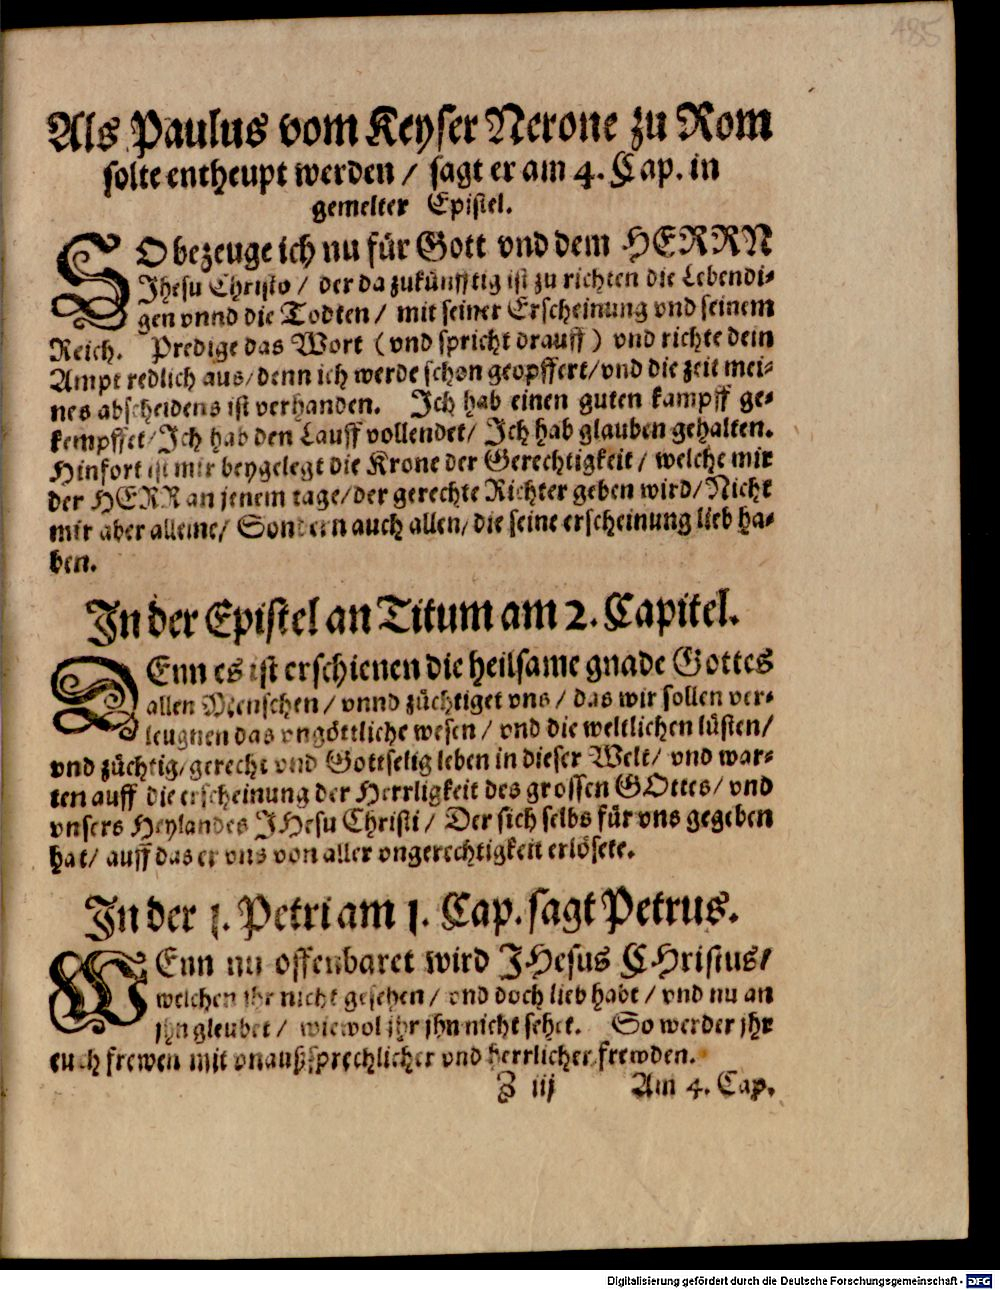 185
Als Paulus vom Keyser Nerone zu Rom
solte entheupt werden / sagt er am 4. Cap. in
gemelter Epistel.
SO bezeuge ich nu für Gott vnd dem HERRN
Jhesu Christo / der da zukünfftig ist zu richten die Lebendi-
gen vnnd die Todten / mit seiner Erscheinung vnd seinem
Reich. Predige das Wort ( vnd spricht drauff ) vnd richte dein
Ampt redlich aus/ denn ich werde schon geopffert/ vnd die zeit mei-
nes abscheidens ist verhanden. Ich hab einen guten kampff ge-
kempffet/ Ich hab den Lauff vollendet/ Ich hab glauben gehalten.
Hinfort ist mir beygelegt die Krone der Gerechtigkeit / welche mir
der HERR an jenem tage/ der gerechte Richter geben wird/ Nicht
mir aber alleine/ Sondern auch allen/ die seine erscheinung lieb ha-
ben.
In der Epistel an Titum am 2. Capitel.
DEnn es ist erschienen die heilsame gnade Gottes
allen Menschen / vnnd züchtiget vns / das wir sollen ver-
leugnen das vngöttliche wesen / vnd die weltlichen lüsten/
vnd züchtig/ gerecht vnd Gottselig leben in dieser Welt/ vnd war-
ten auff die erscheinung der Herrligkeit des grossen GOttes/ vnd
vnsers Heylandes JHesu Christi / Der sich selbs für vns gegeben
hat/ auff das er vns von aller vngerechtigkeit erlösete.
In der 1. Petri am 1. Cap. sagt Petrus.
WEnn nu offenbaret wird JHesus CHristus/
welchen ihr nicht gesehen / vnd doch lieb habt / vnd nu an
jhn gleubet / wiewol jhr jhn nicht sehet. So werdet jhr
euch frewen mit vnaußsprechlicher vnd herrlicher frewden.
Z iij Am 4. Cap.
Digitalisierung gefördert durch die Deutsche Forschungsgemeinschaft - DFG